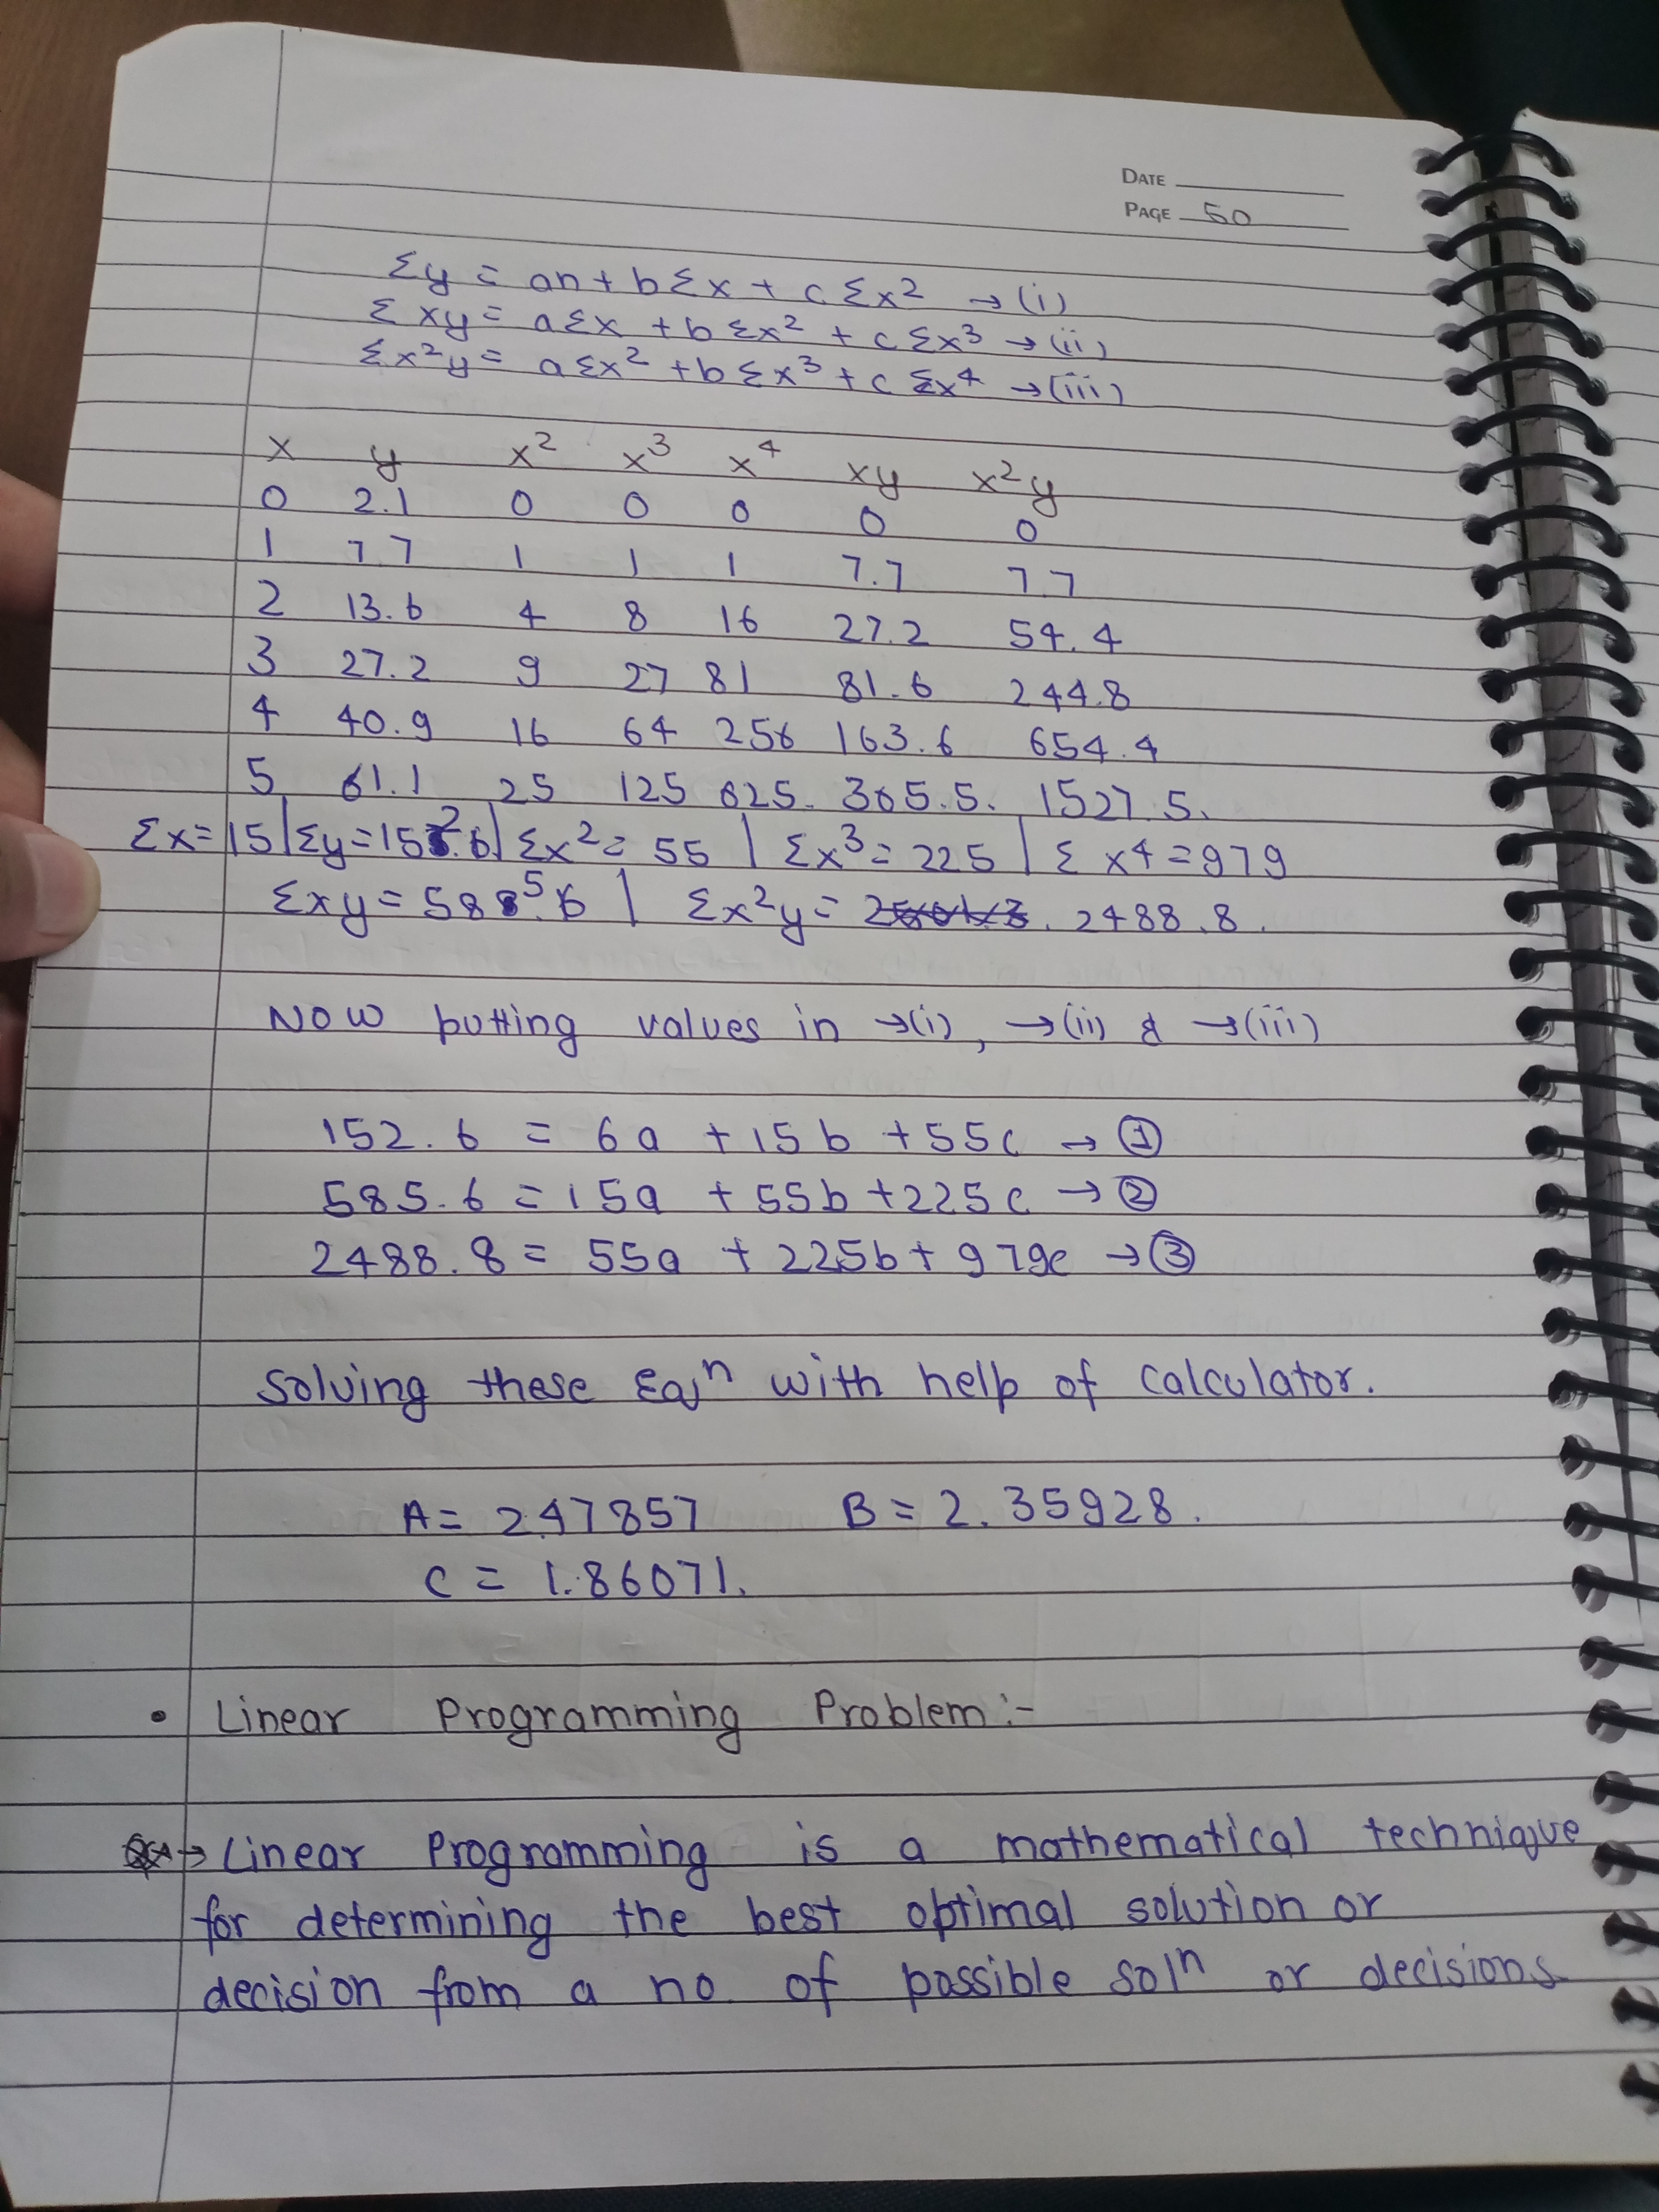 DATE
PAGE 50
Σy = an + bΣx + cΣx² → (i)
Σxy = aΣx + bΣx² + cΣx³ → (ii)
Σx²y = aΣx² + bΣx³ + cΣx⁴ → (iii)
x y x² x³ x⁴ xy x²y
0 2.1 0 0 0 0 0
1 7 7 1 1 1 7.7 7 7
2 13.6 4 8 16 27.2 54.4
3 27.2 9 27 81 81.6 244.8
4 40.9 16 64 256 163.6 654.4
5 61.1 25 125 625. 305.5. 1527.5.
Σx = 15 | Σy = 152.6 | Σx² = 55 | Σx³ = 225 | Σx⁴ = 979
Σxy = 585.6 | Σx²y = 2488.8.
Now putting values in → (i), → (ii) & → (iii)
152.6 = 6a + 15b + 55c → ①
585.6 = 15a + 55b + 225c → ②
2488.8 = 55a + 225b + 979c → ③
Solving these Eqⁿ with help of calculator.
A = 2.47857 B = 2.35928.
C = 1.86071.
• Linear Programming Problem :-
→ Linear Programming is a mathematical technique
for determining the best optimal solution or
decision from a no. of possible solⁿ or decisions.